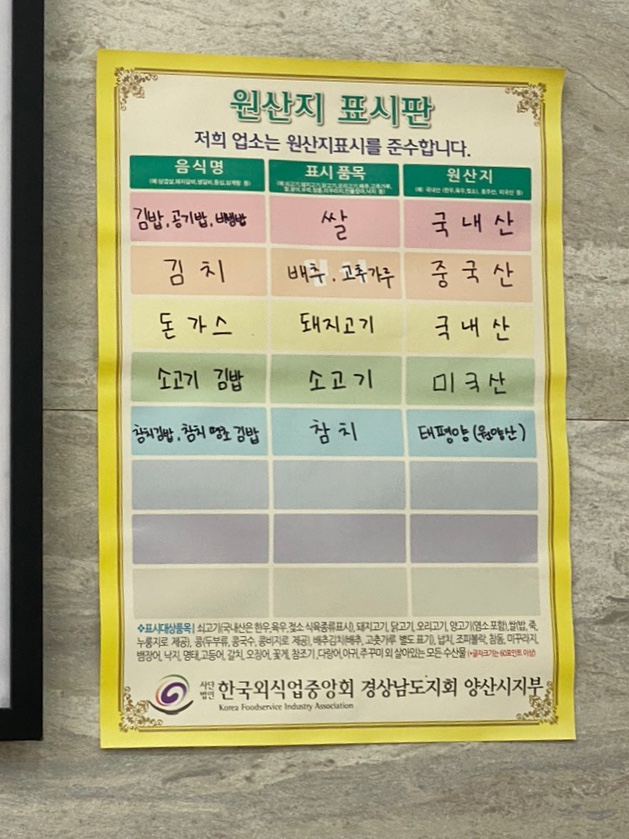 원산지 표시판
저희 업소는 원산지표시를 준수합니다.
음식명 표시 품목 원산지
김밥, 공기밥, 비빔밥 쌀 국내산
김치 배추, 고추가루 중국산
돈가스 돼지고기 국내산
소고기 김밥 소고기 미국산
참치김밥, 참치 명초 김밥 참치 태평양(원양산)
❖표시대상품목| 쇠고기(국내산은 한우,육우,젖소 식육종류표시), 돼지고기, 닭고기, 오리고기, 양고기(염소 포함),쌀(밥, 죽,
누룽지로 제공), 콩(두부류, 콩국수, 콩비지로 제공), 배추김치(배추, 고춧가루 별도 표기), 넙치, 조피볼락, 참돔, 미꾸라지,
뱀장어, 낙지, 명태,고등어, 갈치, 오징어, 꽃게, 참조기, 다랑어,아귀,주꾸미 외 살아있는 모든 수산물 (*글자크기는 60포인트 이상)
사단법인 한국외식업중앙회 경상남도지회 양산시지부
Korea Foodservice Industry Association